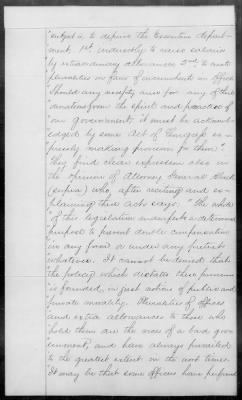 "subject is to deprive the Executive depart-
ment, 1st, indirectly to raise salaries
by extraordinary allowances 2nd to create
pluralities in favor of incumbents in office
Should any necessity arise for any of these
variations from the spirit and practice of
our government, it must be acknowl-
edged by some Act of Congress ex-
pressly making provision for them"
They find clear expression also in
the opinion of Attorney General Black
(supra) who, after reciting and ex-
plaining these acts says: "The whole
"of this legislation manifests a determined
purpose to prevent double compensation
in any form or under any pretext
whatever. It cannot be denied that
the policy which dictates these provisions
is founded in just notions of public and
private morality. Pluralities of offices
and extra allowances to those who
hold them are the vices of a bad gov-
ernment, and have always prevailed
to the greatest extent in the worst times.
It may be that some officers have performed